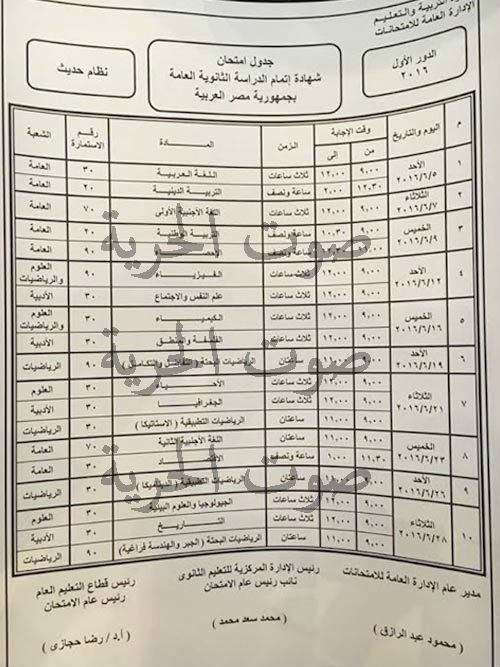 وزارة التربية والتعليم
الإدارة العامة للامتحانات
الدور الأول
٢٠١٦
جدول امتحان
شهادة إتمام الدراسة الثانوية العامة
بجمهورية مصر العربية
نظام حديث
م اليوم والتاريخ وقت الإجابة من إلى الزمن المادة رقم الاستمارة الشعبة
١ الأحد ٢٠١٦/٦/٥ ٩,٠٠ ١٢,٠٠ ثلاث ساعات اللغة العربية ٣٠ العامة
١٢,٣٠ ٢,٠٠ ساعة ونصف التربية الدينية ٢٠ العامة
٢ الثلاثاء ٢٠١٦/٦/٧ ٩,٠٠ ١٢,٠٠ ثلاث ساعات اللغة الأجنبية الأولى ٧٠ العامة
٣ الخميس ٢٠١٦/٦/٩ ٩,٠٠ ١٠,٣٠ ساعة ونصف التربية الوطنية ٢٠ العامة
ساعة ونصف الإحصاء ٩٠ العامة
٤ الأحد ٢٠١٦/٦/١٢ ٩,٠٠ ١٢,٠٠ ثلاث ساعات الفيزياء ٩٠ العلوم والرياضيات
٩,٠٠ ١٢,٠٠ ثلاث ساعات علم النفس والاجتماع ٣٠ الأدبية
٥ الخميس ٢٠١٦/٦/١٦ ٩,٠٠ ١٢,٠٠ ثلاث ساعات الكيمياء ٣٠ العلوم والرياضيات
٩,٠٠ ١٢,٠٠ ثلاث ساعات الفلسفة والمنطق ٣٠ الأدبية
٦ الأحد ٢٠١٦/٦/١٩ ٩,٠٠ ١١,٠٠ ساعتان الرياضيات البحتة (التفاضل والتكامل) ٩٠ الرياضيات
٧ الثلاثاء ٢٠١٦/٦/٢١ ٩,٠٠ ١٢,٠٠ ثلاث ساعات الأحياء ٣٠ العلوم
٩,٠٠ ١٢,٠٠ ثلاث ساعات الجغرافيا ٣٠ الأدبية
٩,٠٠ ١١,٠٠ ساعتان الرياضيات التطبيقية (الاستاتيكا) ٣٠ الرياضيات
٨ الخميس ٢٠١٦/٦/٢٣ ٩,٠٠ ١١,٠٠ ساعتان اللغة الأجنبية الثانية ٧٠ العامة
١١,٣٠ ١,٠٠ ساعة ونصف الاقتصاد ٣٠ العامة
٩ الأحد ٢٠١٦/٦/٢٦ ٩,٠٠ ١١,٠٠ ساعتان الرياضيات التطبيقية (الديناميكا) ٣٠ الرياضيات
١٠ الثلاثاء ٢٠١٦/٦/٢٨ ٩,٠٠ ١٢,٠٠ ثلاث ساعات الجيولوجيا والعلوم البيئية ٣٠ العلوم
٩,٠٠ ١٢,٠٠ ثلاث ساعات التاريخ ٣٠ الأدبية
٩,٠٠ ١١,٠٠ ساعتان الرياضيات البحتة (الجبر والهندسة فراغية) ٩٠ الرياضيات
صوت الحرية
صوت الحرية
صوت الحرية
مدير عام الإدارة العامة للامتحانات
( محمود عبد الرازق )
رئيس الإدارة المركزية للتعليم الثانوى
نائب رئيس عام الامتحان
( محمد سعد محمد )
رئيس قطاع التعليم العام
رئيس عام الامتحان
( أ.د/ رضا حجازى )